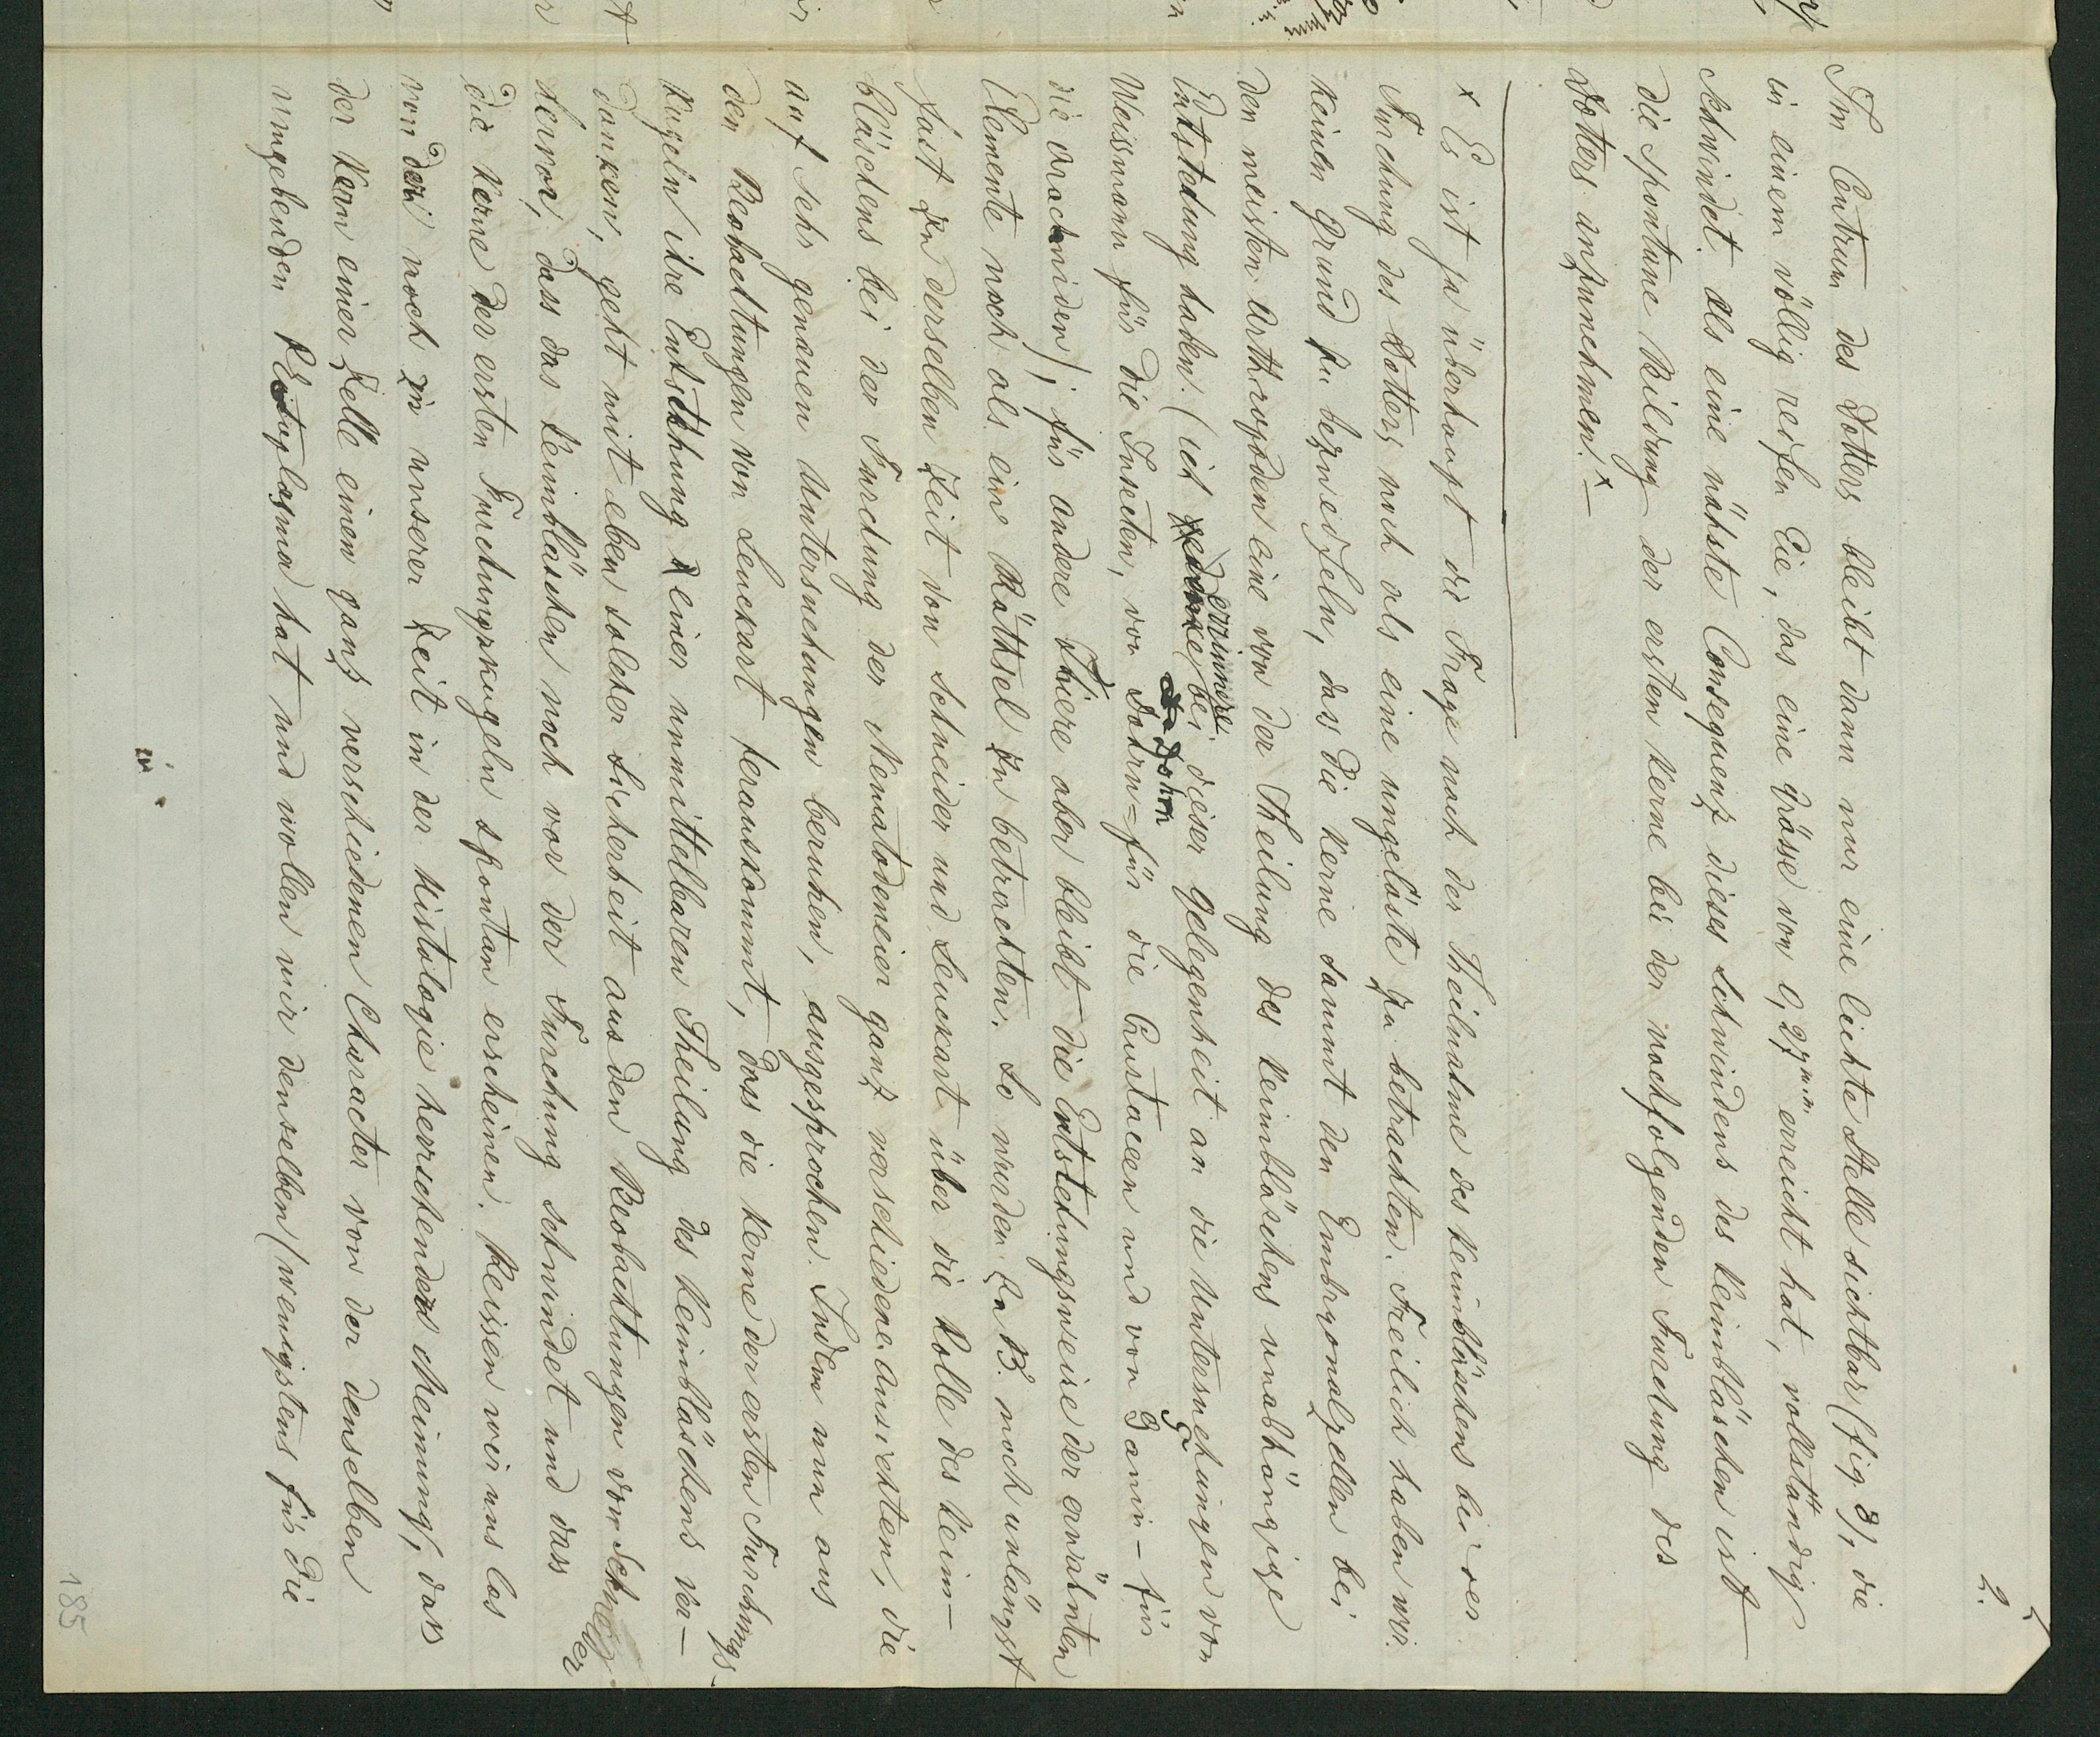 2.
Im Centrum des Dotters bleibt dann nur eine lichte Stelle sichtbar (fig 3), die
in einem völlig reifen Eie, das eine Grösse von 0,27 mm erreicht hat, vollständig
schwindet. Als eine nähste Consequenz dieses Schwindens des Keimbläschen ist
die spontane Bildung der ersten Kerne bei der nachfolgenden Furchung des
Dotters anzunehmen. x —
x Es ist ja überhaupt die Frage nach der Theilnahme des Keimbläschens bei der
Furchung des Dotters noch als eine ungelöste zu betrachten. Freilich haben wir
keinen Grund zu bezweifeln, das die Kerne sammt den Embryonalzellen bei
den meisten Arthropoden eine von der Theilung des Keimbläschens unabhängige
Entstehung haben. (ich erinnere bei dieser Gelegenheit an die Untersuchungen von
Weismann für die Insecten, von Dohrn – für die Crustaceen und von Ganin – für
die Arachniden); für andere Thiere aber bleibt die Entstehungsweise der erwähnten
Elemente noch als ein Räthsel zu betrachten. So wurden z. B. noch unlängst
fast zu derselben Zeit von Schneider und Leuckart über die Rolle des Keim-
bläschens bei der Furchung der Nematodeneier ganz verschiedene Ansichten, die
auf sehr genauen Untersuchungen beruhen, ausgesprochen. Indem nun aus
den Beobachtungen von Leuckart herauskommt, dass die Kerne der ersten Furchungs-
kugeln ihre Entstehung einer unmittelbaren Theilung des Keimbläschens ver-
danken, geht mit eben solcher Sicherheit aus den Beobachtungen von Schneider
hervor, dass das Keimbläschen noch vor der Furchung schwindet und dass
die Kerne der ersten Furchungskugeln spontan erscheinen. Reissen wir uns los
von der noch zu unserer Zeit in der Histologie herrschenden Meinung, dass
der Kern einer Zelle einen ganz verschiedenen Character von der denselben
umgebenden Protoplasma hat und wollen wir denselben (wenigstens für die
185